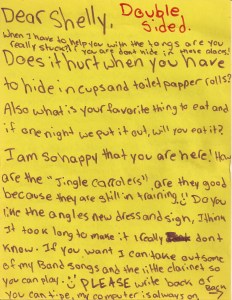 Dear Shelly, Double Sided.
When I have to help you with the tangs are you
really stuck? If you are dont hide in those places!
Does it hurt when you have
to hide in cups and toilet papper rolls?
Also what is your favorite thing to eat and
if one night we put it out, will you eat it?
I am so happy that you are here! How
are the "Jingle carrolers", are they good
because they are still in training? Do you
like the angles new dress and sign, I think
it took long to make it I really dont
know. If you want I can take out some
of my Band songs and the little clarinet so
you can play. PLEASE write back or
you can type, my computer is always on Back